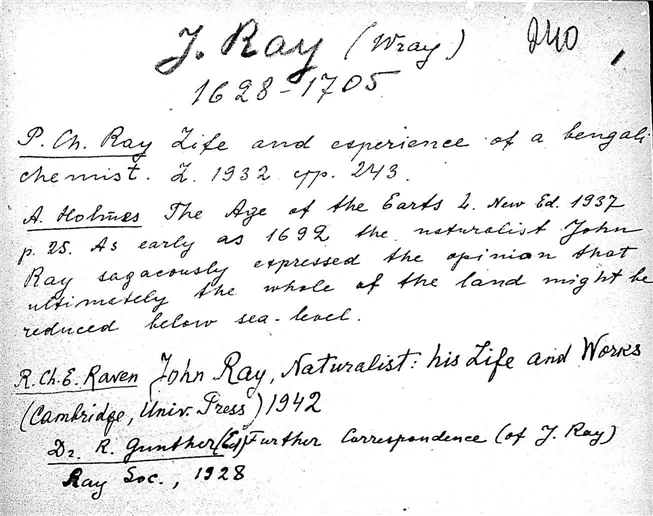 J. Ray (Wray) 240
1628-1705
P. Ch. Ray Life and experience of a bengali
chemist. L. 1932 pp. 243.
A. Holmes The Age of the Earts L. New Ed. 1937
p. 25. As early as 1692 the naturalist John
Ray sagacously expressed the opinion that
ultimetely the whole of the land might be
reduced below sea-level.
R. Ch. E. Raven John Ray, Naturalist: his Life and Works
(Cambridge, Univ. Press) 1942
Dr. R. Gunther (Ed) Further Correspondence (of J. Ray)
Ray Soc., 1928